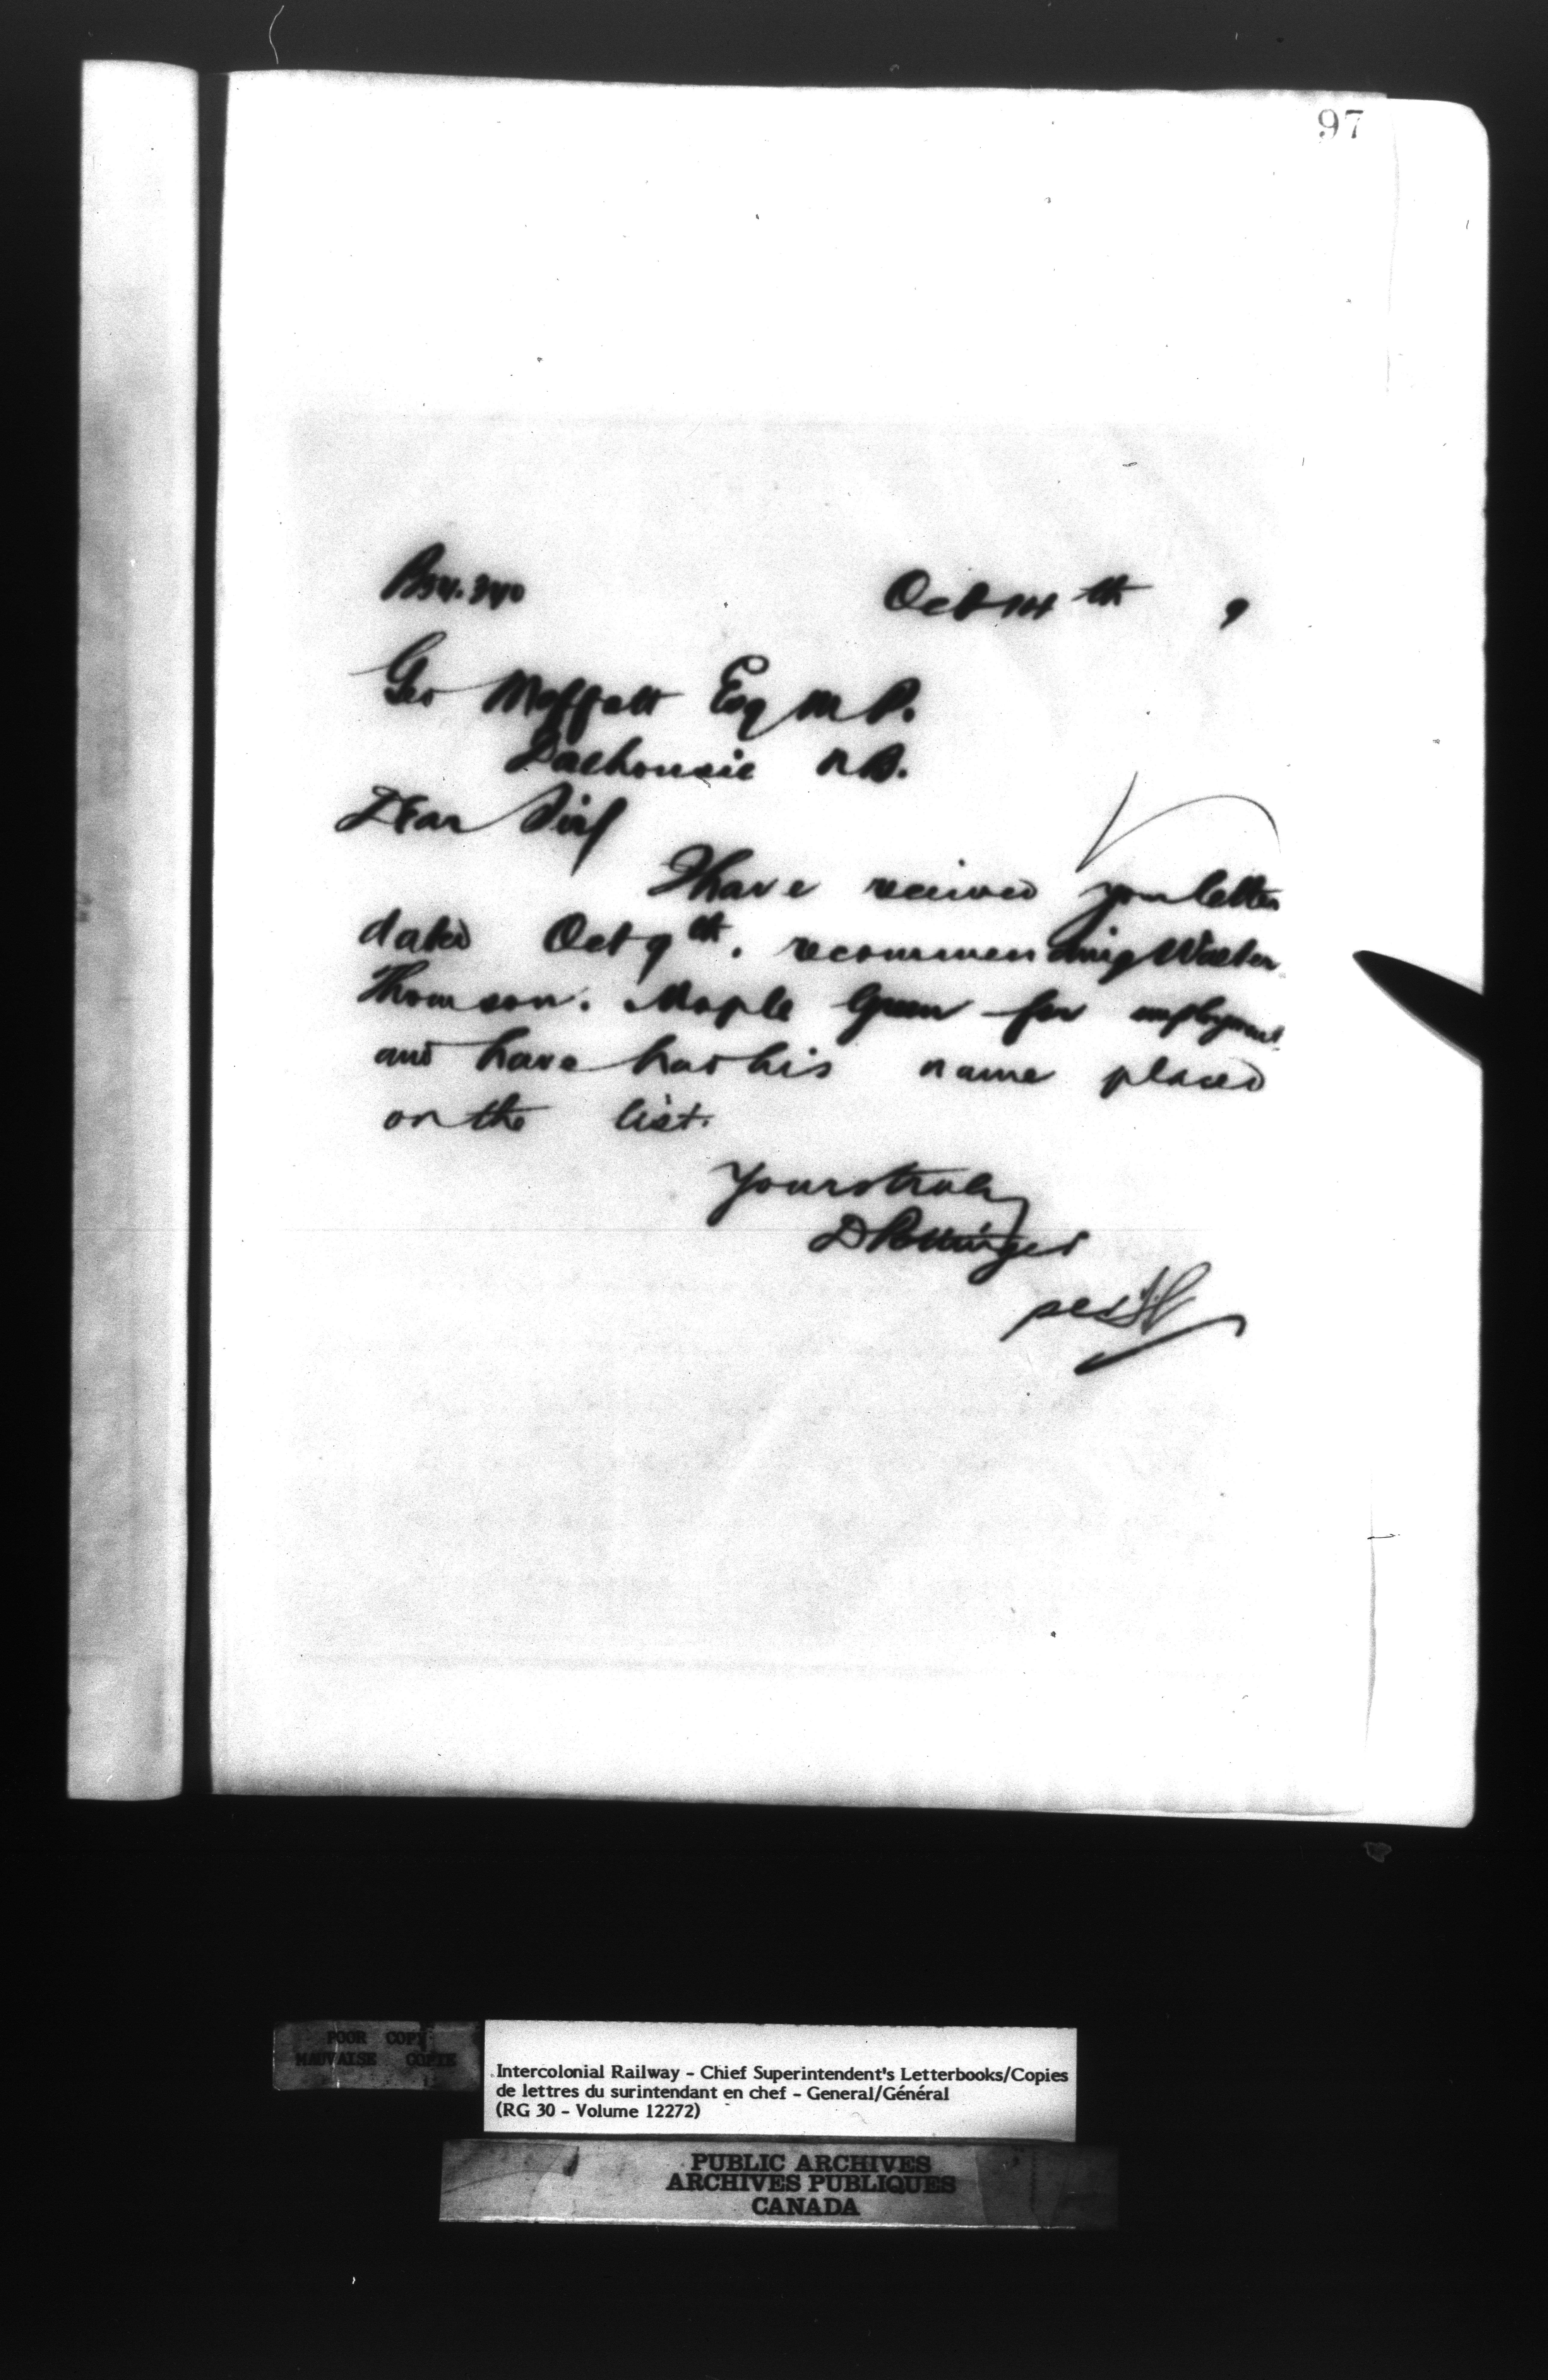 97
Oct 14th 9
Geo Moffatt Esq M P.
Dalhousie N B.
Dear Sir
I have received your letter
dated Oct 9th. recommending Walter
Thomson. Maple Green for employment
and have had his name placed
on the list.
Yours truly
D Pottinger
per
POOR COPY
MAUVAISE COPIE
Intercolonial Railway - Chief Superintendent's Letterbooks/Copies
de lettres du surintendant en chef - General/Général
(RG 30 - Volume 12272)
PUBLIC ARCHIVES
ARCHIVES PUBLIQUES
CANADA